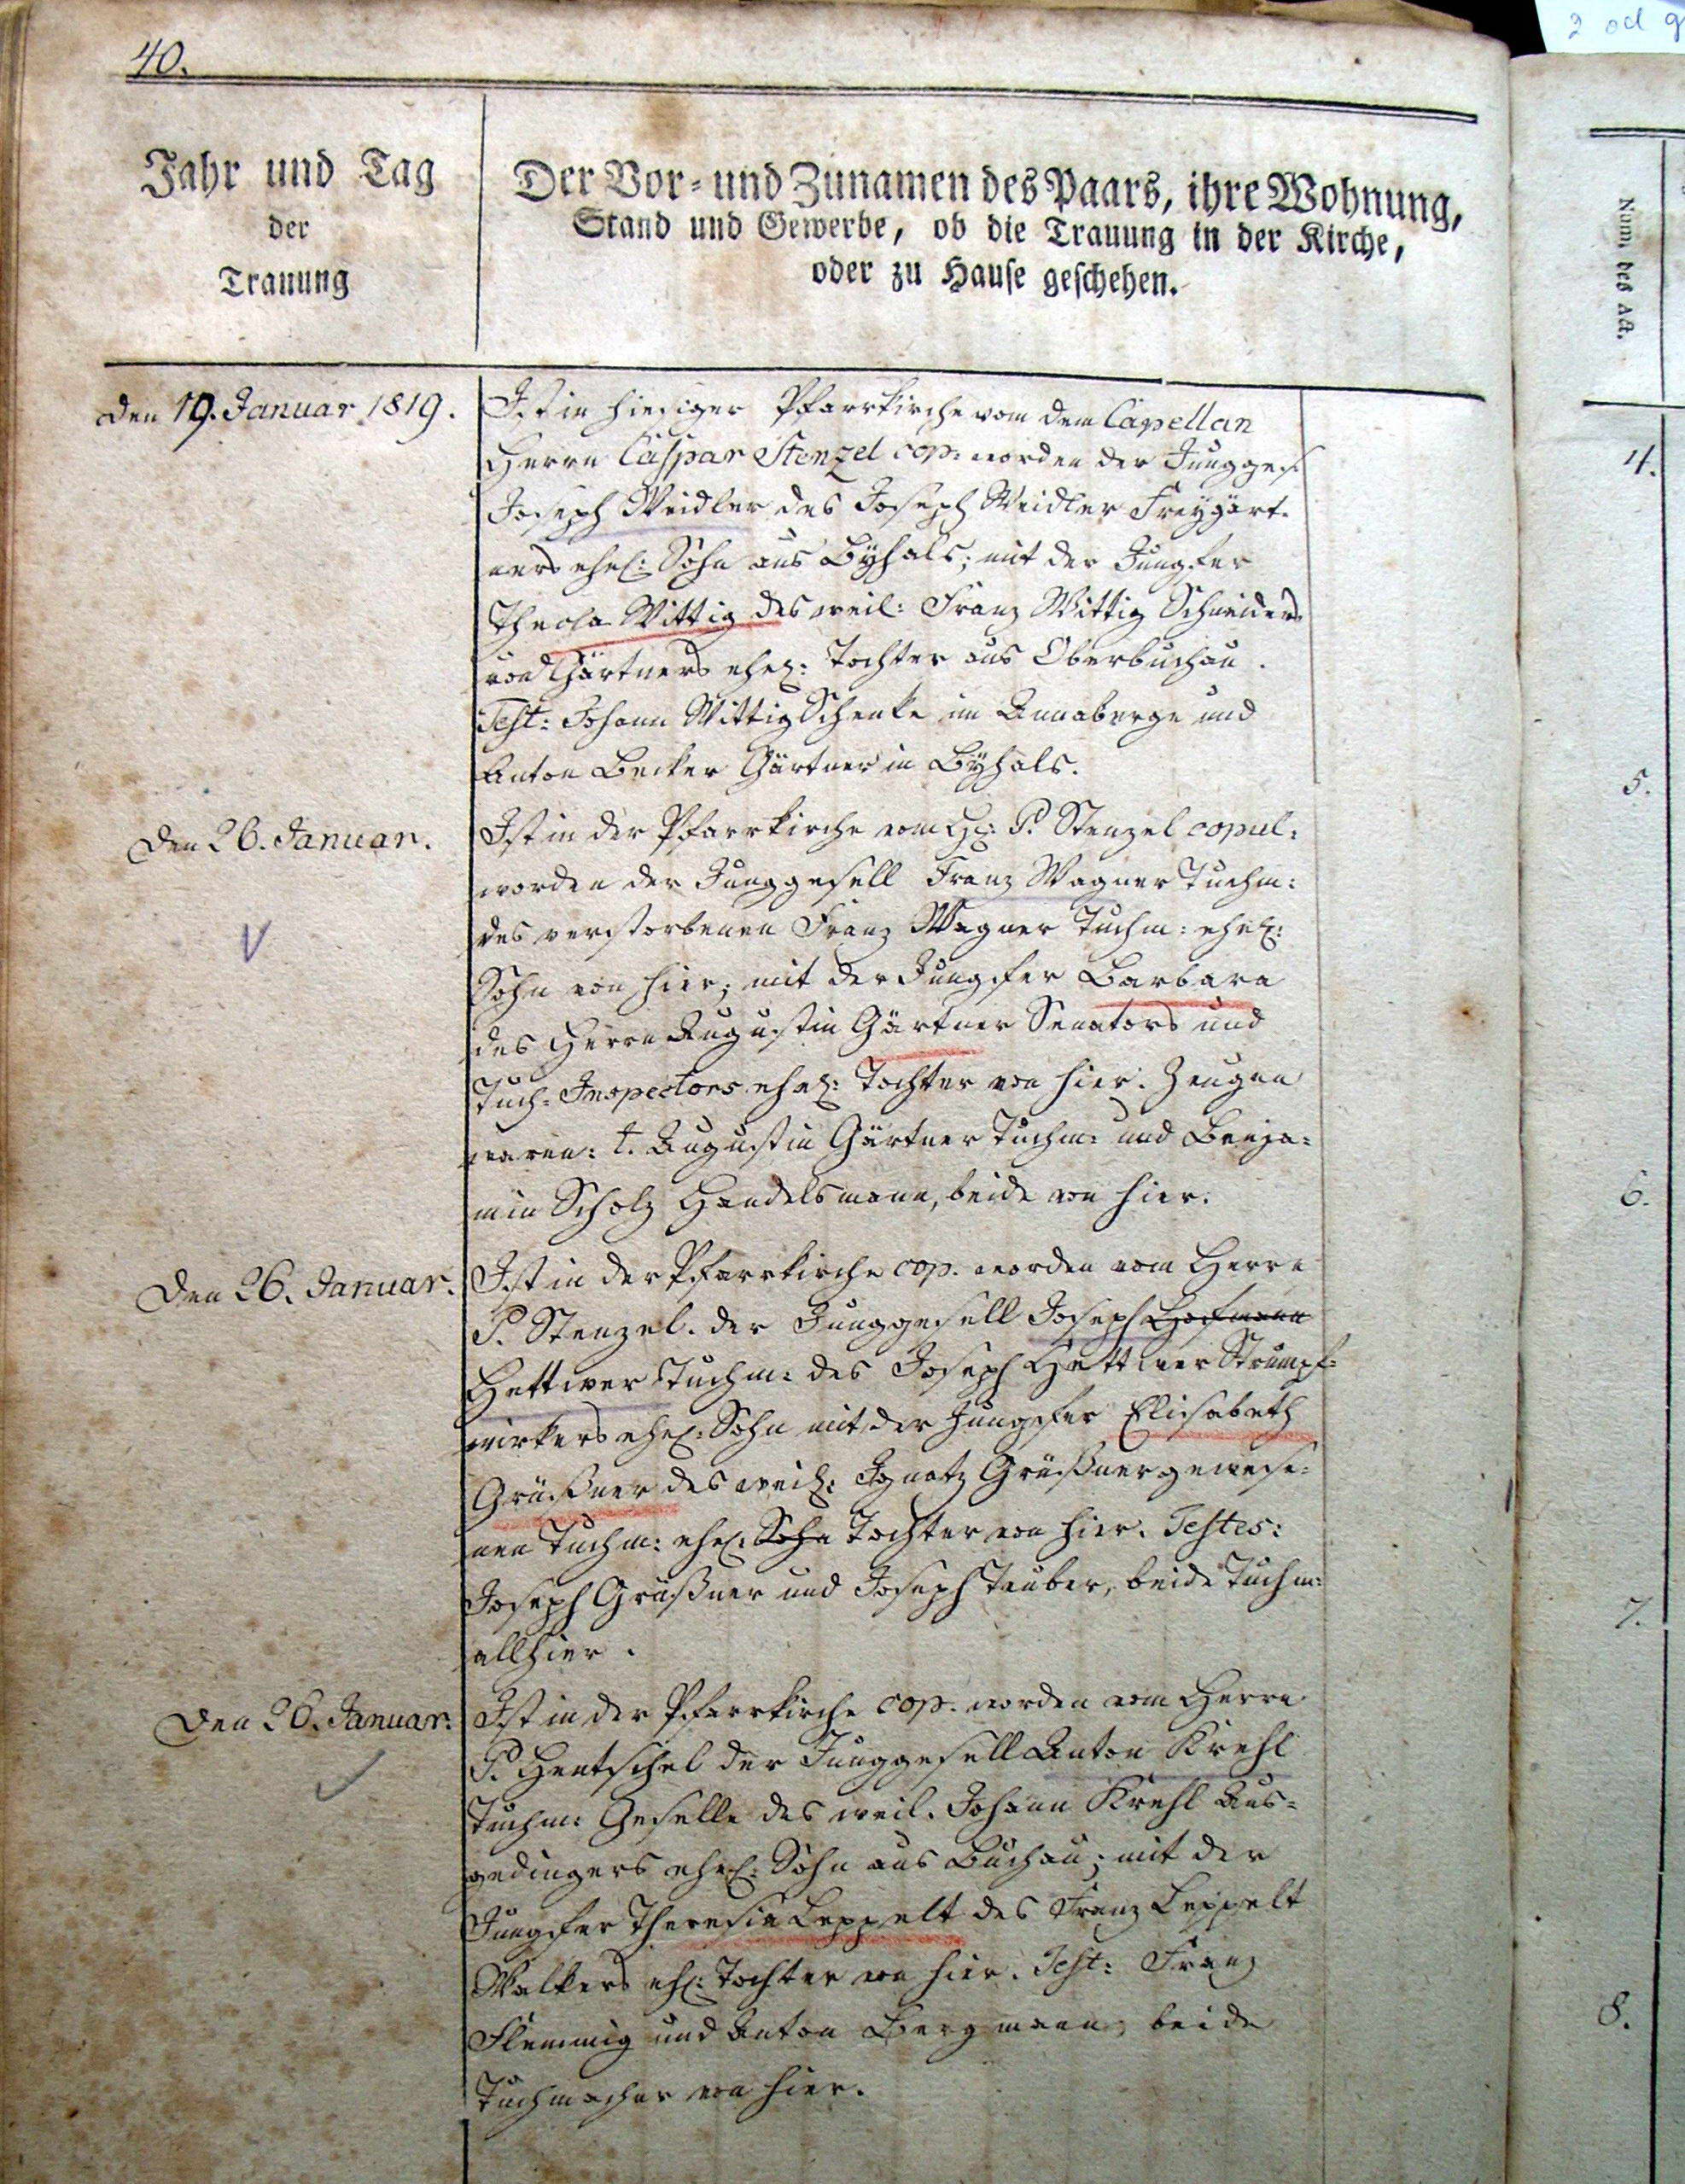 2 od g
40.
Jahr und Tag
der
Trauung
Der Vor- und Zunamen des Paars, ihre Wohnung,
Stand und Gewerbe, ob die Trauung in der Kirche,
oder zu Hause geschehen.
Den 19. Januar 1819.
Ist in hiesiger Pfarrkirche vom dem Capellan
Herrn Caspar Stenzel cop. worden der Jungges.
Joseph Weidler des Joseph Weidler Freygärt-
ners ehel: Sohn aus Byhals; mit der Jungfer
Theola Wittig des weil: Franz Wittig Schneiders
und Gärtners ehel: Tochter aus Oberbuchau.
Test: Johann Wittig Schenke im Annaberge und
Anton Becker Gärtner in Byhals.
Den 26. Januar.
Ist in der Pfarrkirche vom H: P. Stenzel copul:
worden der Junggesell Franz Wagner Tuchm:
des verstorbenen Franz Wagner Tuchm: ehel:
Sohn von hier; mit der Jungfer Barbara
des Herrn Augustin Gärtner Senators und
Tuch-Inspectors ehel: Tochter von hier. Zeugen
waren: t. Augustin Gärtner Tuchm: und Benja-
min Scholz Handelsmann, beide von hier.
Den 26. Januar.
Ist in der Pfarrkirche cop. worden vom Herrn
P. Stenzel. der Junggesell Joseph Hofmann
Hettwer Tuchm: des Joseph Hettwer Strumpf-
wirkers ehel: Sohn mit der Jungfer Elisabeth
Gräßner des weil: Ignatz Gräßner gewese-
nen Tuchm: ehel: Sohn Tochter von hier. Testes:
Joseph Gräßner und Joseph Teuber, beide Tuchm:
allhier.
Den 26. Januar.
Ist in der Pfarrkirche cop. worden vom Herrn
P. Hentschel der Junggesell Anton Krehl
Tuchm: Geselle des weil. Johann Krehl Aus-
gedingers ehel: Sohn aus Buchau; mit der
Jungfer Theresia Leppelt des Franz Leppelt
Walkers ehl: Tochter von hier. Test: Franz
Flemmig und Anton Bergmann, beide
Tuchmacher von hier.
Num. des Act.
4.
5.
6.
7.
8.